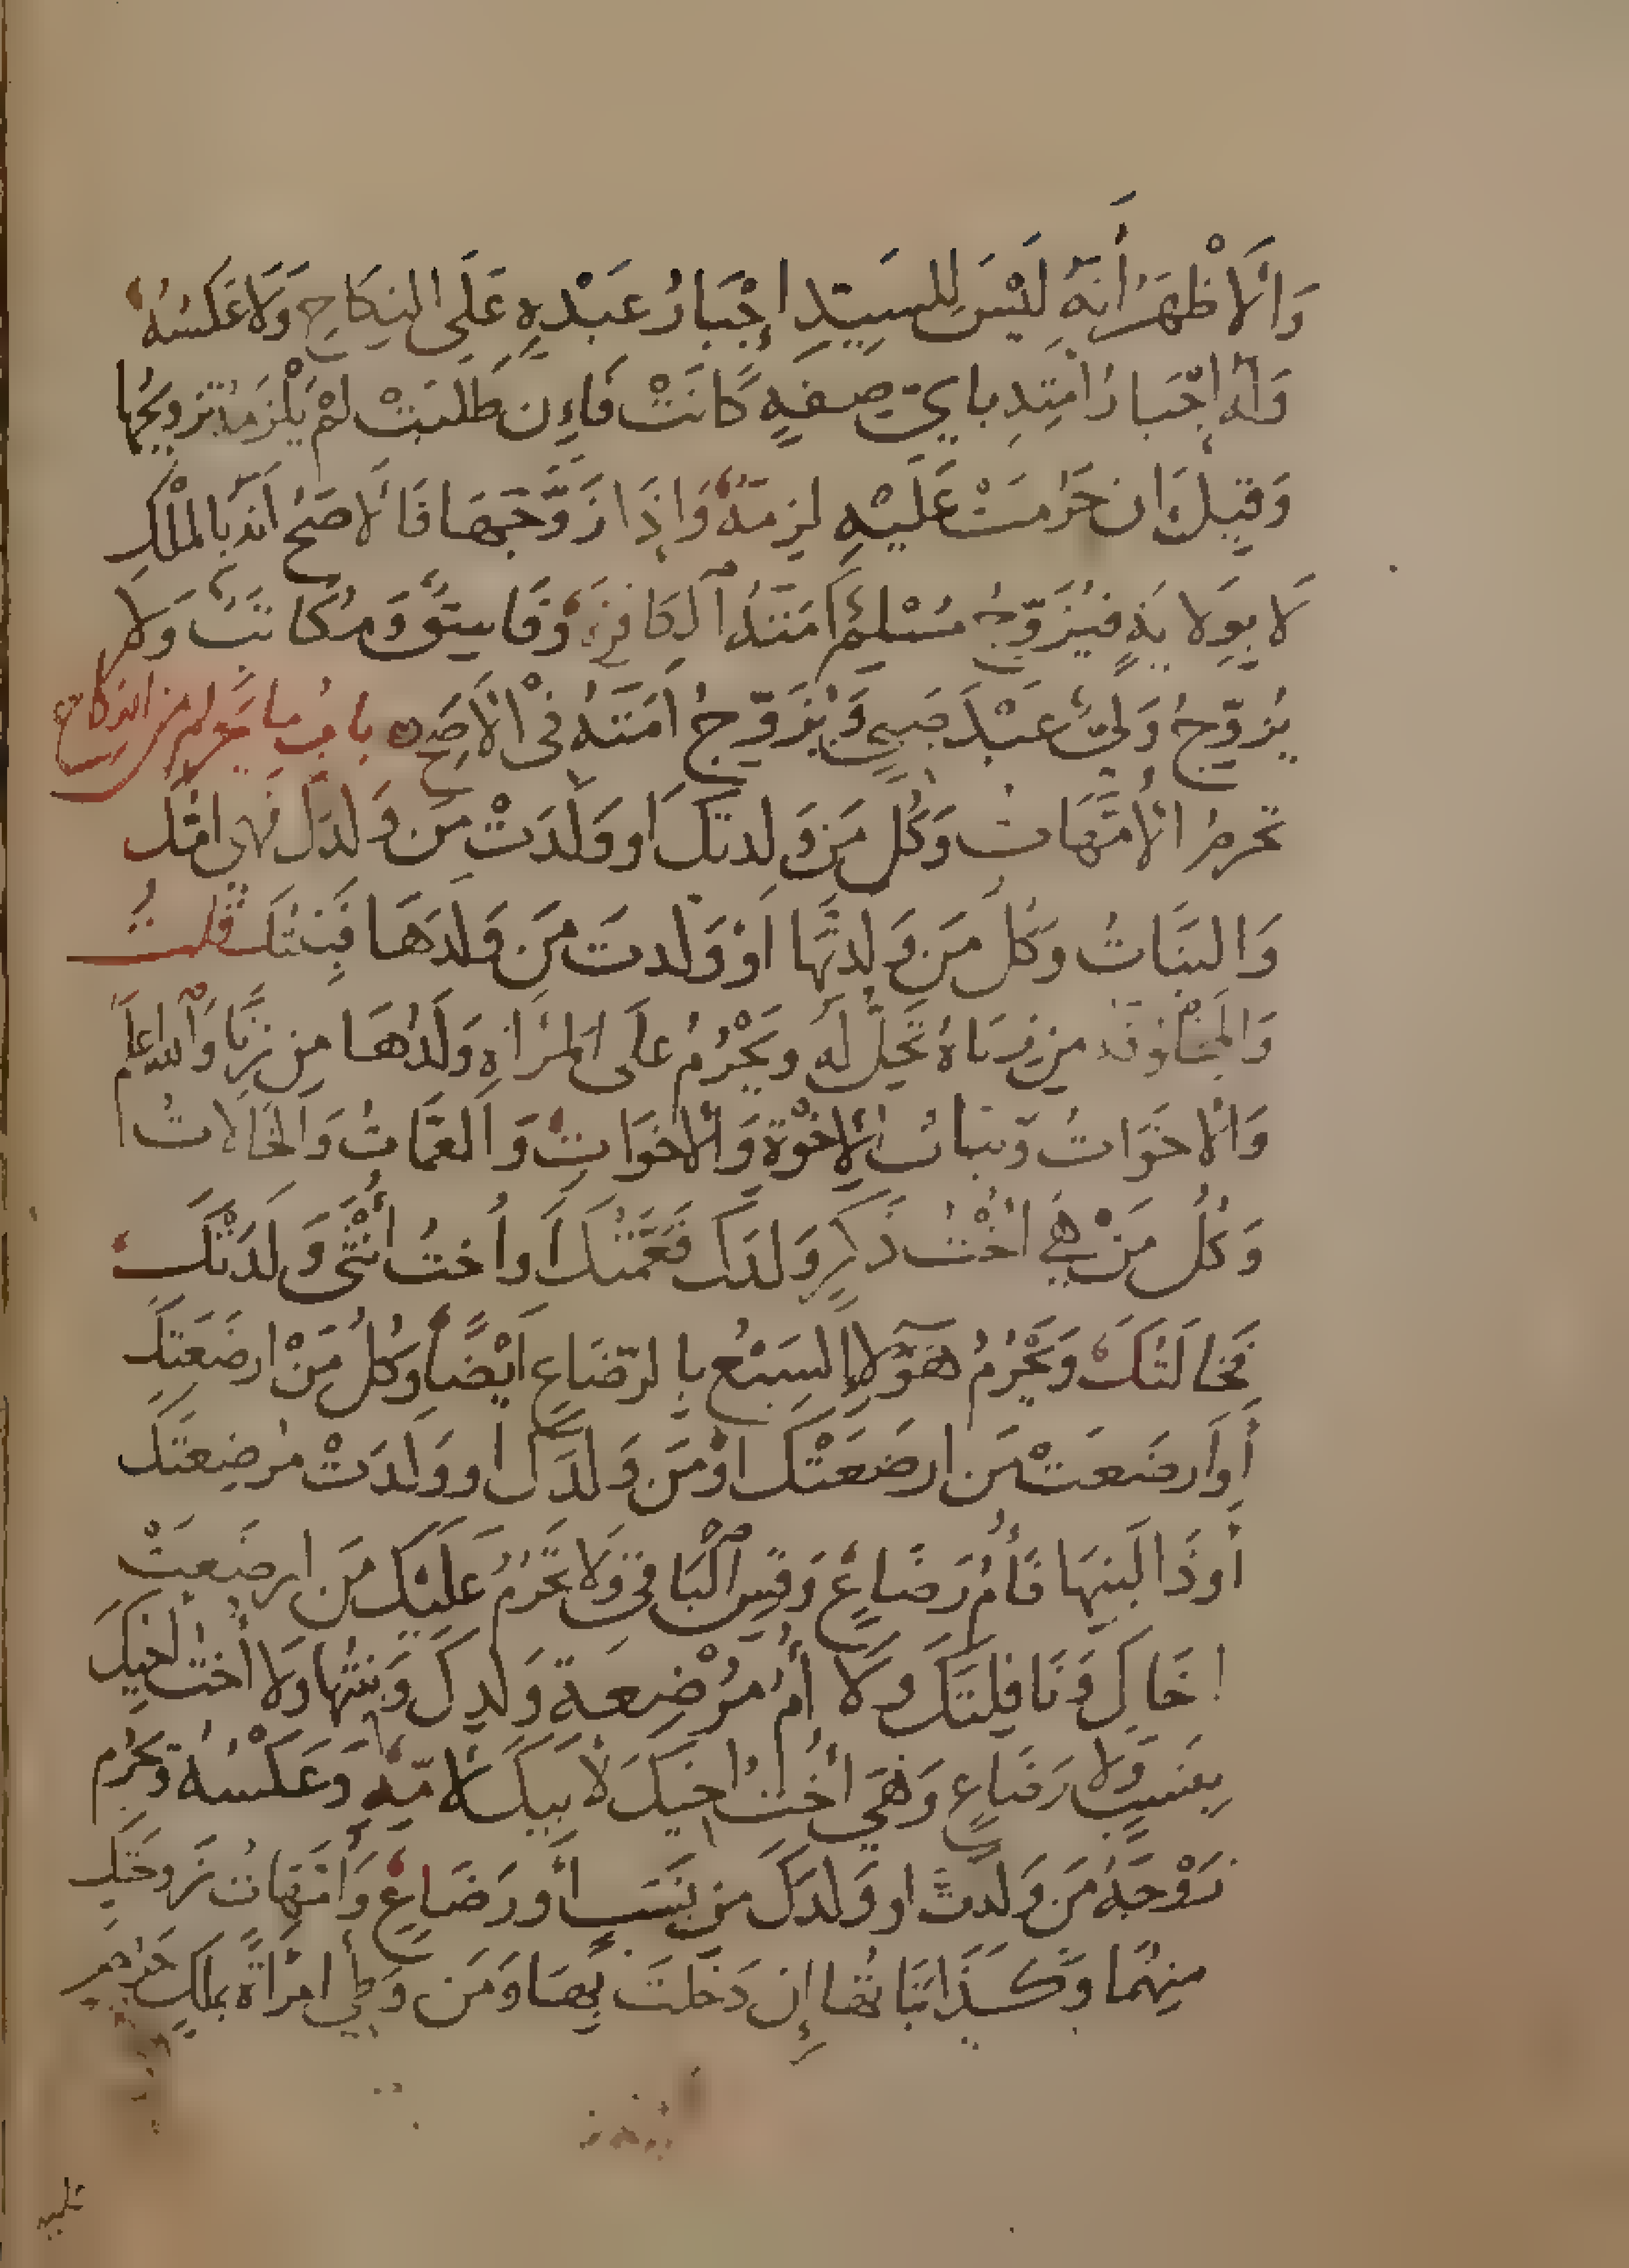 وَالْأَظْهَرُ أَنَّهُ لَيْسَ لِلسَيِّدِ إِجْبَارُ عَبْدِهِ عَلَى النِكَاحِ وَلَا عَكْسُهُ
وَلَهُ إِجْبَارُ امَتِهِ بِايِّ صِفَةٍ كَانَتْ فَإِن طَلَبَتْ لَمْ يَلْزَمْهُ تزويجُها
وَقِيلَ إِن حَرُمَتْ عَلَيْهِ لزِمَهُ وَإِذَا زَوَّجَهَا فَالاصَحُ أَنَهُ بِالمِلْكِ
لَا بِوِلَايَةٍ فَيُزَوِّجُ مُسْلِمٌ امَتَهُ الكَافِرَةَ وَفَاسِقٌ وَمُكَاتَبٌ وَلَا
يُزَوِّجُ وَلِيُّ عَبْدَ صَبِيٍ وَيُزَوِّجُ امَتَهُ فِي الْأَصَحِ بابُ ما يَحرم من النكاح
تحرمُ الأُمَّهَاتُ وَكُل مَن وَلَدتكَ او وَلَدَتْ مَن وَلدَكَ فَهِي امُّك
وَالبَنَاتُ وَكُلُ مَن وَلدتَهَا أَوْ وَلدتَ مَن وَلَدَهَا فَبِنتكَ قلتُ
وَالمَخْلُوقَةُ مِن زِنَاهُ تَحِلُّ لَهُ وَيَحْرُمُ عَلَى المَرْأَةِ وَلَدُهَا مِن زِنًا وَاللهُ اعلَم
وَالْاخَوَاتُ وَبَنَاتُ الْإِخْوَةِ وَالْأخَوَاتِ وَالعَمَّاتُ وَالخَالَاتُ
وَكُلُ مَنْ هِيَ اخْتُ ذَكَرٍ وَلدَكَ فَعَمَّتُكَ أَو أُختُ انْثَى وَلَدَتْكَ
فَخَالَتُكَ وَيَحْرُمُ هَؤُلَاءِ السَبْعُ بِالرّضَاعِ أَيْضًا وَكُلُ مَنْ ارضَعَتكَ
أَو أَرضَعَتْ مَن ارضَعَتْكَ اوْ مَن وَلَدَكَ او وَلَدَتْ مُرضِعَتَكَ
أَو ذَا لَبَنِهَا فَأُمُ رَضَاعٍ وَقِسِ الْبَاقِي وَلَا تَحْرُمُ عَلَيْكَ مَن ارضَعَتْ
اخَاكَ وَنَافِلَتَكَ وَلَا أُمُ مُرْضِعَةِ وَلَدِكَ وَبِنتُهَا وَلَا أُخْتُ أخِيكَ
بِنَسَبٍ وَلَا رَضَاعٍ وَهِيَ أُخْتُ اخِيكَ لِأَبِيكَ لأُمّهِ وَعَكْسُهُ وَتَحْرُم
زَوْجَةُ مَن وَلَدتَ او وَلدَكَ مِن نَسَبٍ أَو رَضَاعٍ وَأُمَّهَاتُ زَوجَتكَ
مِنهُمَا وَكَذَا بَنَاتُهَا إِن دَخَلتَ بِهَا وَمَن وَطِي امْرَأَةً بِملكٍ حَرُم
عليه